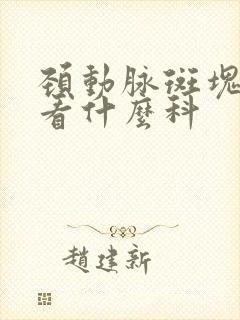 頸動脉斑塊
看什麽科
趙建新